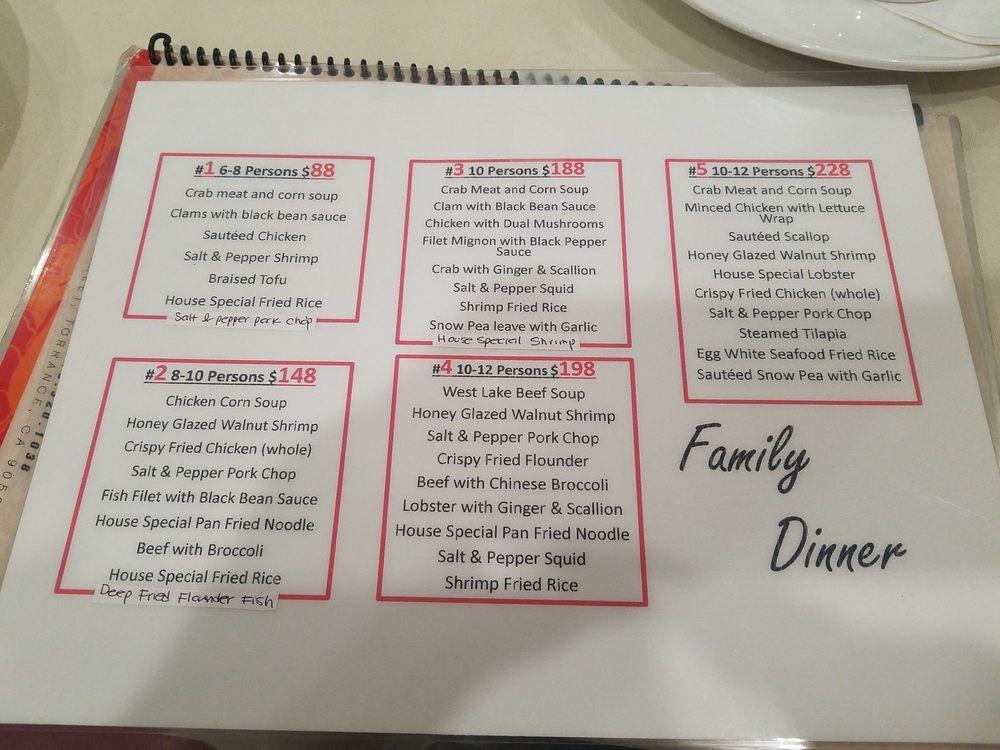 #1 6-8 Persons $88
Crab meat and corn soup
Clams with black bean sauce
Sautéed Chicken
Salt & Pepper Shrimp
Braised Tofu
House Special Fried Rice
Salt & pepper pork chop
#2 8-10 Persons $148
Chicken Corn Soup
Honey Glazed Walnut Shrimp
Crispy Fried Chicken (whole)
Salt & Pepper Pork Chop
Fish Filet with Black Bean Sauce
House Special Pan Fried Noodle
Beef with Broccoli
House Special Fried Rice
Deep Fried Flounder Fish
#3 10 Persons $188
Crab Meat and Corn Soup
Clam with Black Bean Sauce
Chicken with Dual Mushrooms
Filet Mignon with Black Pepper
Sauce
Crab with Ginger & Scallion
Salt & Pepper Squid
Shrimp Fried Rice
Snow Pea leave with Garlic
House Special Shrimp
#4 10-12 Persons $198
West Lake Beef Soup
Honey Glazed Walnut Shrimp
Salt & Pepper Pork Chop
Crispy Fried Flounder
Beef with Chinese Broccoli
Lobster with Ginger & Scallion
House Special Pan Fried Noodle
Salt & Pepper Squid
Shrimp Fried Rice
#5 10-12 Persons $228
Crab Meat and Corn Soup
Minced Chicken with Lettuce
Wrap
Sautéed Scallop
Honey Glazed Walnut Shrimp
House Special Lobster
Crispy Fried Chicken (whole)
Salt & Pepper Pork Chop
Steamed Tilapia
Egg White Seafood Fried Rice
Sautéed Snow Pea with Garlic
Family
Dinner
TORRANCE, CA